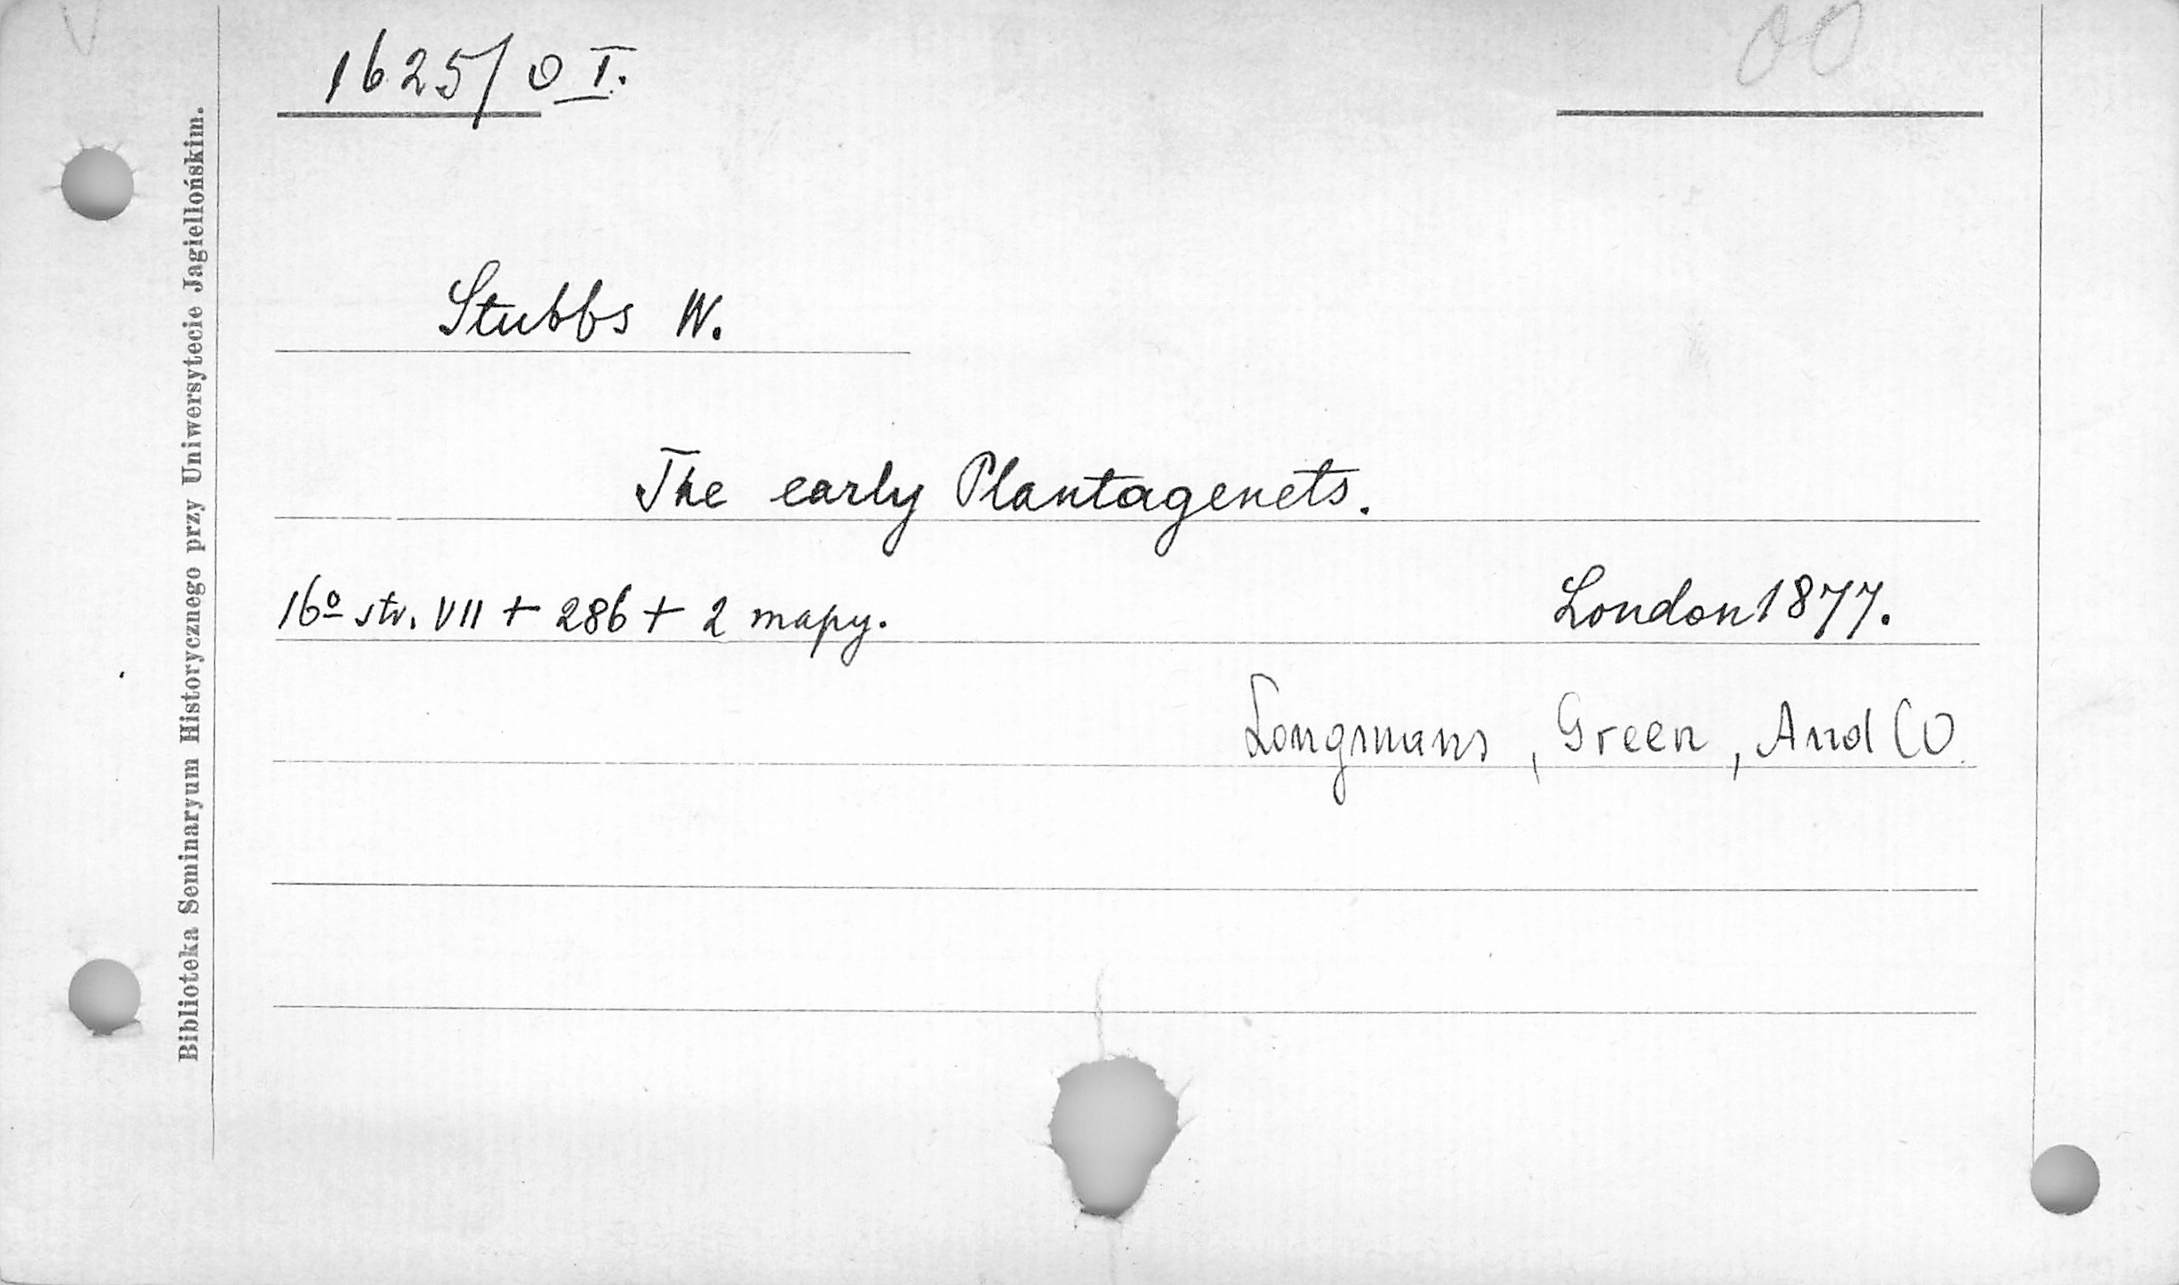 1625/0 I.
00
Stubbs W.
The early Plantagenets.
16º str. VII + 286 + 2 mapy.
London 1877.
Longmans, Green, And CO
Biblioteka Seminaryum Historycznego przy Uniwersytecie Jagiellońskim.